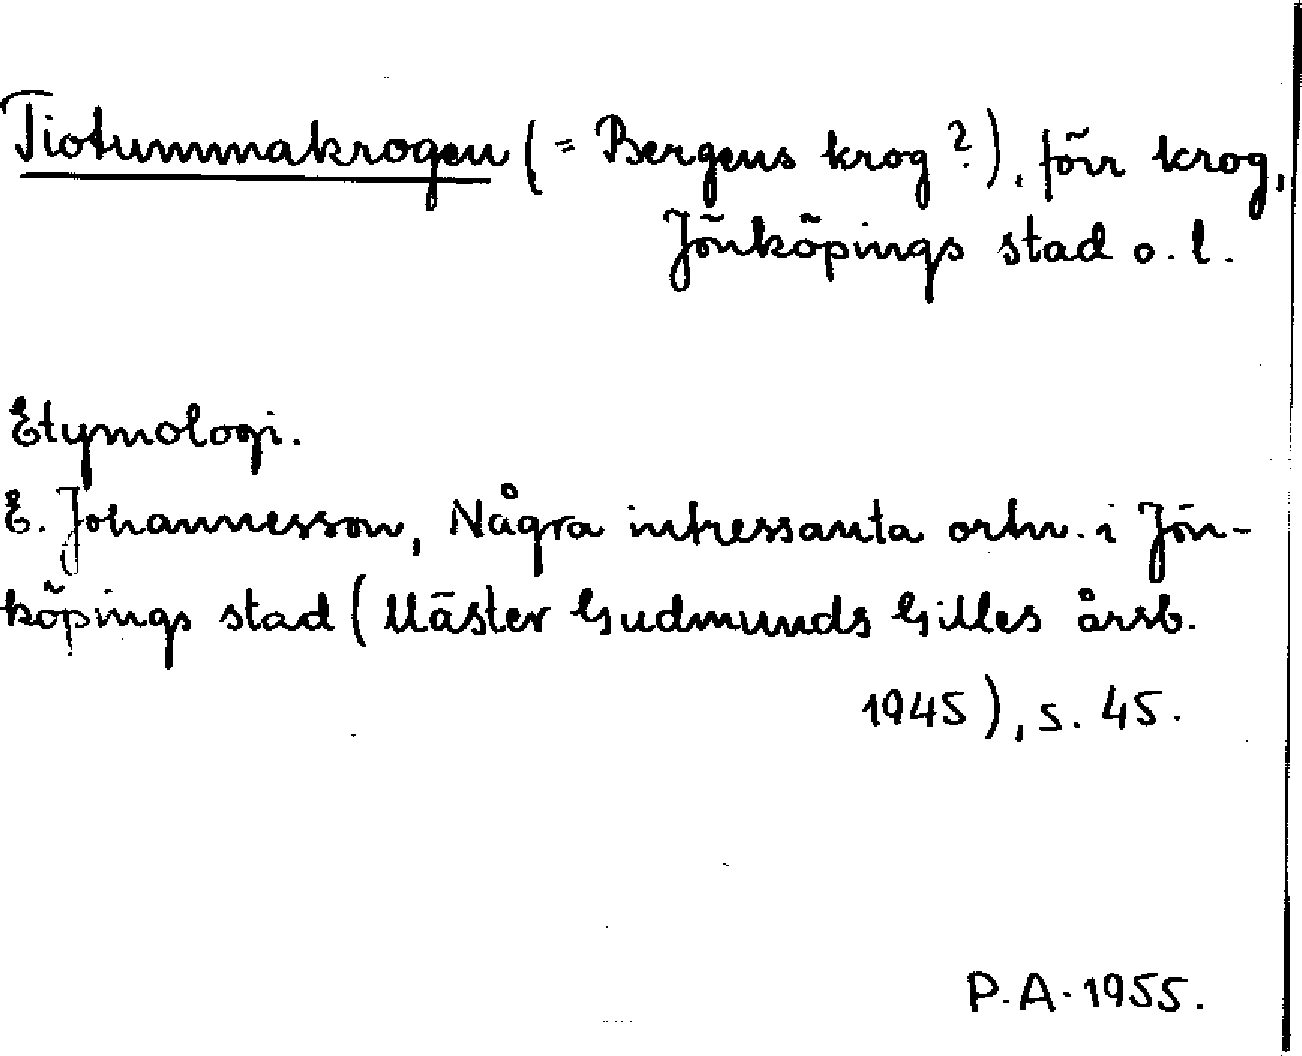 Tiotummakrogen (= Bergens krog?), förr krog,
Jönköpings stad o. l.
Etymologi.
E. Johannesson, Några intressanta ortn. i Jön-
köpings stad (Mäster Gudmunds Gilles årsb.
1945), s. 45.
P.A. 1955.